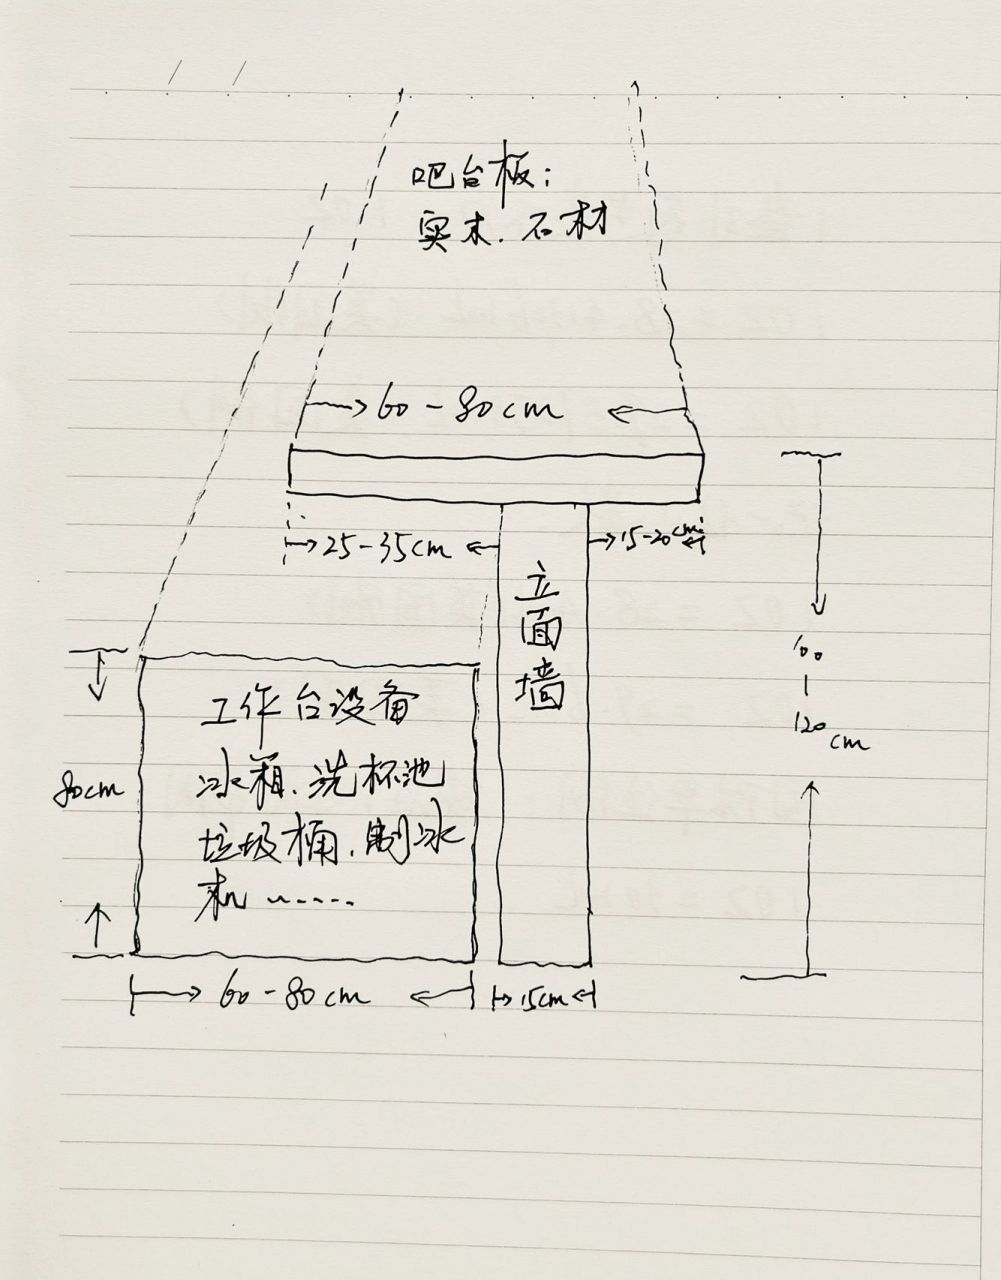 吧台板:
实木、石材
60-80cm
25-35cm
15-20cm
立面墙
100
-
120cm
80cm
工作台设备
冰箱、洗杯池
垃圾桶、制冰
机……
60-80cm
15cm